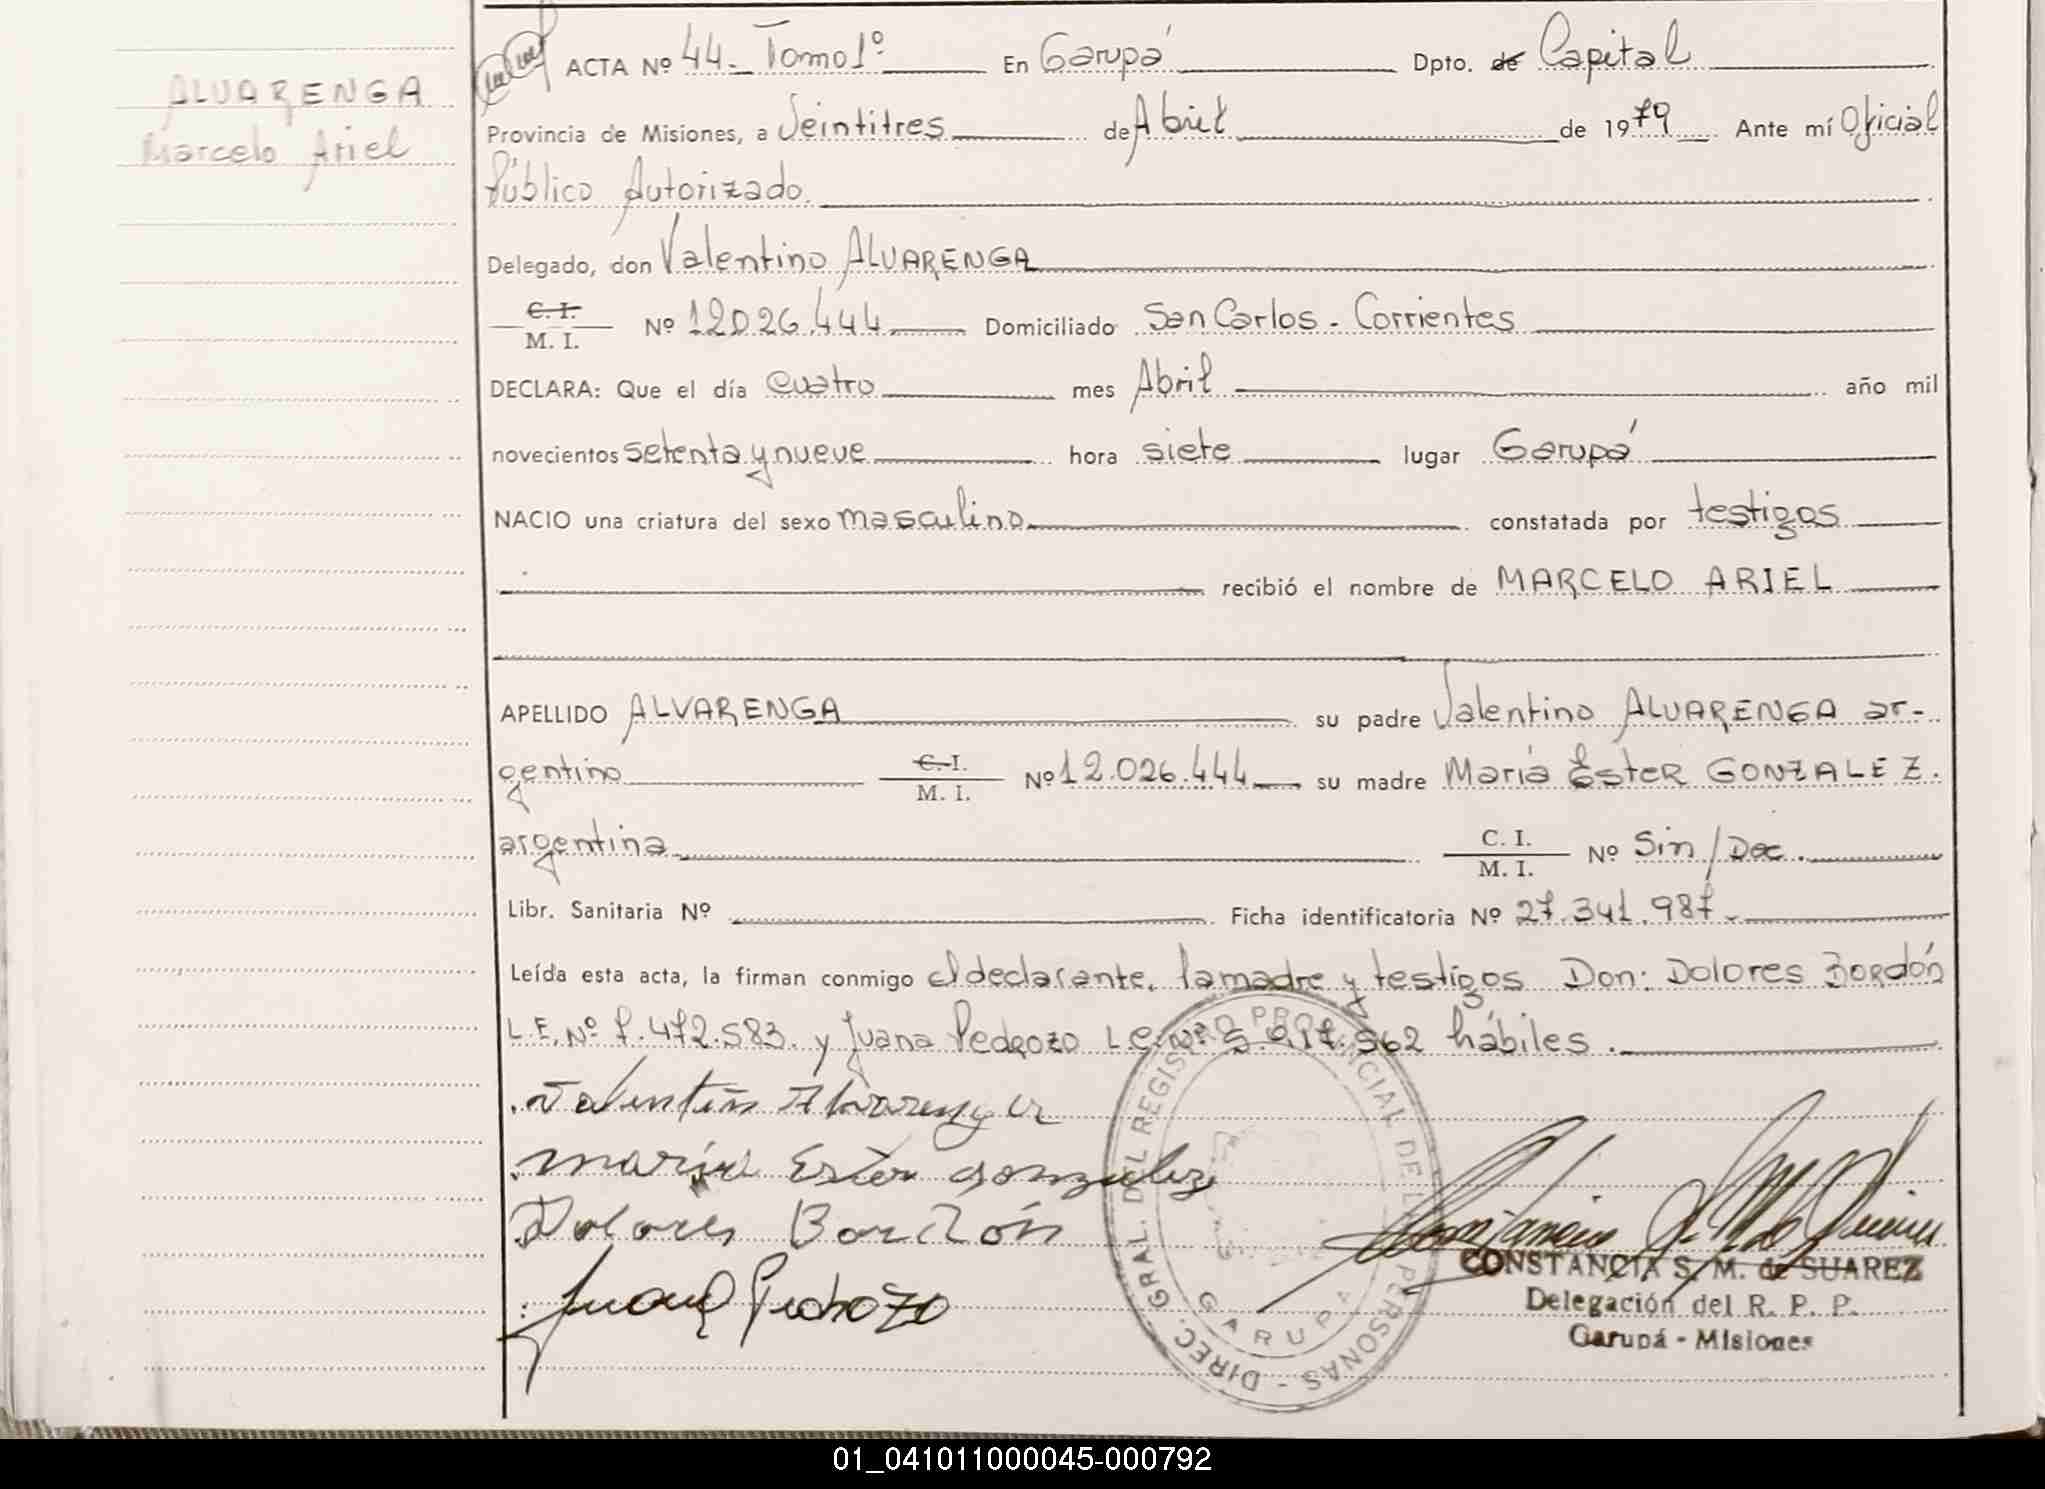 ALVARENGA
Marcelo Ariel
ACTA Nº 44. Tomo 1º En Garupá Dpto. de Capital
Provincia de Misiones, a Veintitres de Abril de 1979 Ante mí Oficial
Público Autorizado.
Delegado, don Valentino ALVARENGA
C. I.
M. I. Nº 12026.444 Domiciliado San Carlos - Corrientes
DECLARA: Que el día cuatro mes Abril año mil
novecientos setenta y nueve hora siete lugar Garupá
NACIO una criatura del sexo masculino constatada por testigos
recibió el nombre de MARCELO ARIEL
APELLIDO ALVARENGA su padre Valentino ALVARENGA ar-
gentino C. I. M. I. Nº 12.026.444 su madre María Ester GONZALEZ.
argentina C. I. M. I. Nº Sin/Doc.
Libr. Sanitaria Nº Ficha identificatoria Nº 27.341.987.
Leída esta acta, la firman conmigo el declarante, la madre y testigos Don: Dolores Bordón
L.E. Nº 7.472.583. y Juana Pedrozo L.C. Nº 5.917.562 hábiles.
Valentin Alvarenga
maria Ester gonzalez
Dolores Bordón
Juana Pedrozo
DIREC. GRAL. DEL REGISTRO PROVINCIAL DE LAS PERSONAS -
GARUPA
CONSTANCIA S. M. de SUAREZ
Delegación del R. P. P.
Garupá - Misiones
01_041011000045-000792